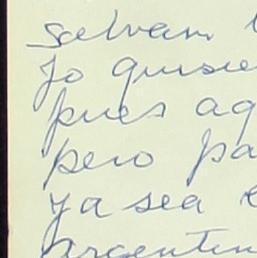 salvam
Yo quisie
pues aq
pero pa
ya sea
Argentin